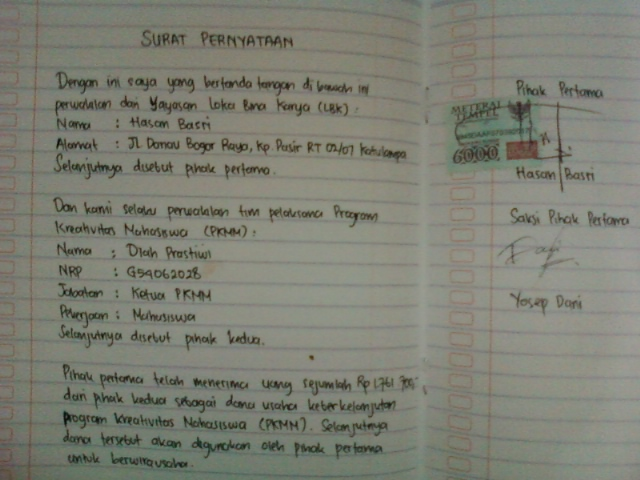 SURAT PERNYATAAN
Dengan ini saya yang bertanda tangan di bawah ini
perwakilan dari Yayasan Loka Bina Karya (LBK) :
Nama : Hasan Basri
Alamat : Jl. Danau Bogor Raya, Kp. Pasir RT 02/07 Katulampa
Selanjutnya disebut pihak pertama.
Dan kami selaku perwakilan tim pelaksana Program
Kreativitas Mahasiswa (PKMM) :
Nama : Diah Prastiwi
NRP : G54062028
Jabatan : Ketua PKMM
Pekerjaan : Mahasiswa
Selanjutnya disebut pihak kedua.
Pihak pertama telah menerima uang sejumlah Rp 1.761.700,-
dari pihak kedua sebagai dana usaha keterkelanjutan
program Kreativitas Mahasiswa (PKMM). Selanjutnya
dana tersebut akan digunakan oleh pihak pertama
untuk berwirausaha.
Pihak Pertama
METERAI
TEMPEL
6000
Hasan Basri
Saksi Pihak Pertama
Yosep Dani